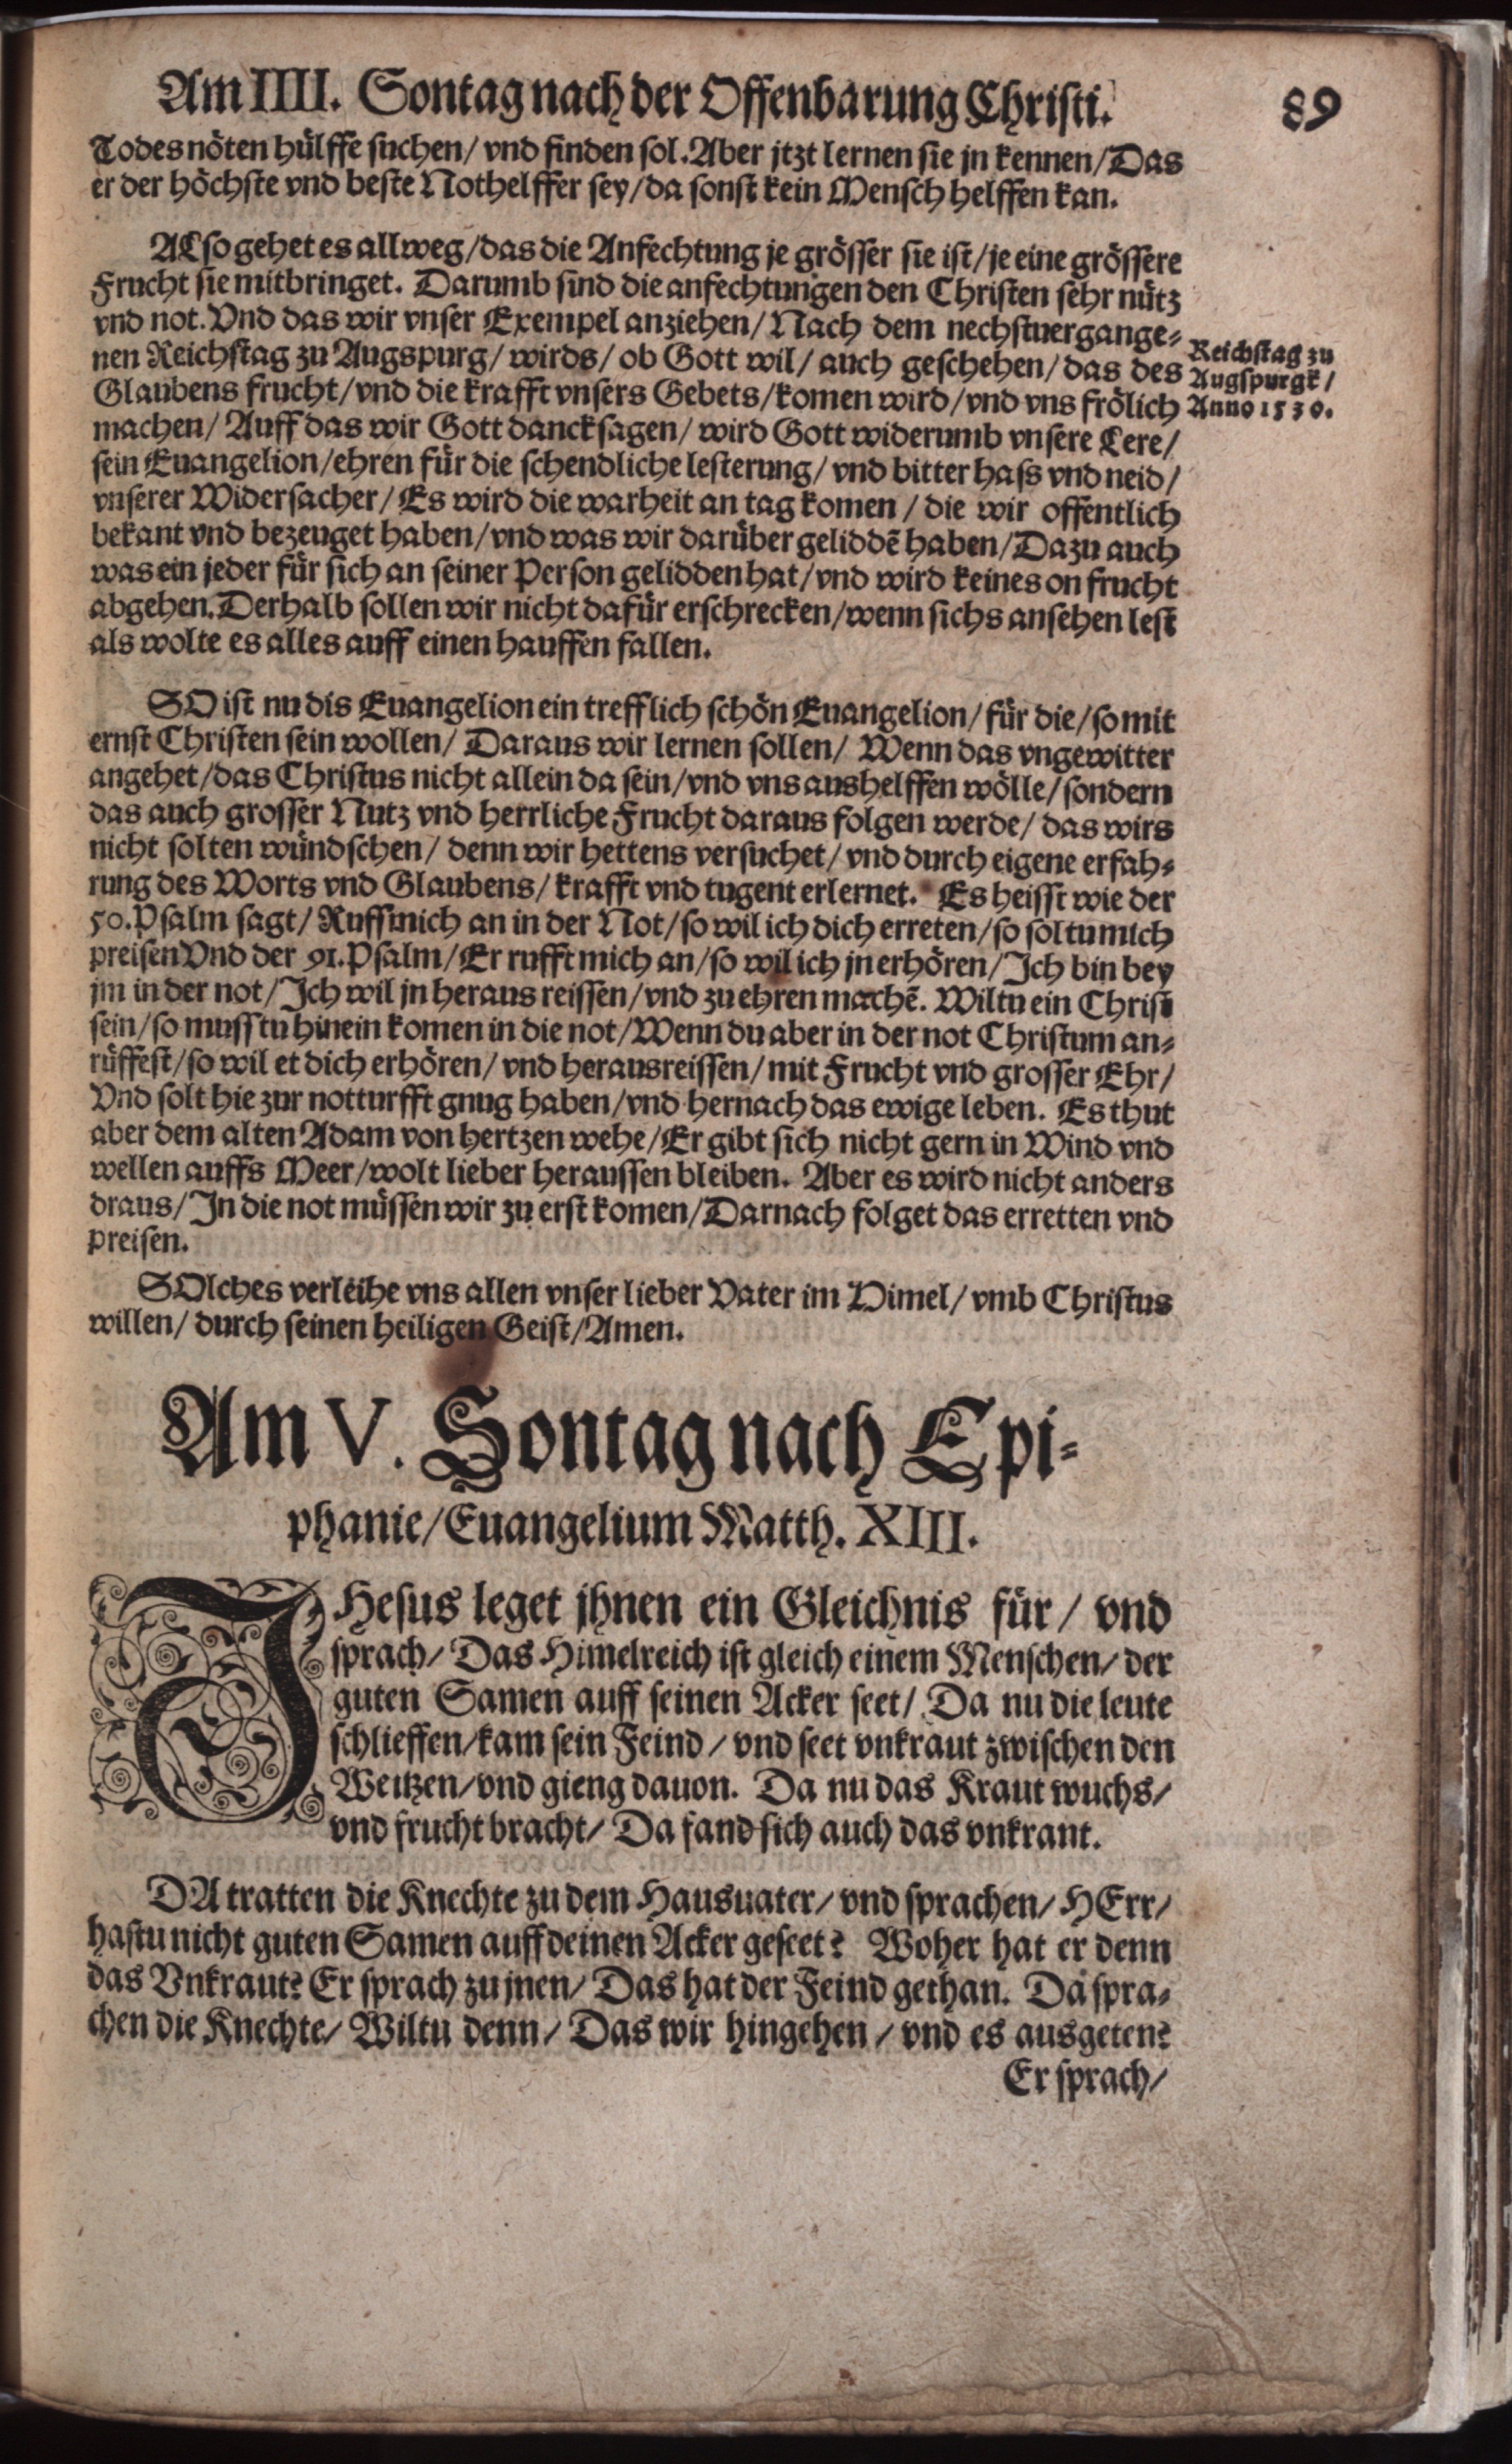 Am IIII. Sontag nach der Offenbarung Christi. 89
Todesnöten hülffe suchen/ vnd finden sol. Aber jtzt lernen sie jn kennen/ Das
er der höchste vnd beste Nothelffer sey/ da sonst kein Mensch helffen kan.
ALso gehet es allweg/ das die Anfechtung je grösser sie ist/ je eine grössere
Frucht sie mitbringet. Darumb sind die anfechtungen den Christen sehr nütz
vnd not. Vnd das wir vnser Exempel anziehen/ Nach dem nechstuergange-
nen Reichstag zu Augspurg/ wirds/ ob Gott wil/ auch geschehen/ das des
Glaubens frucht/ vnd die krafft vnsers Gebets/ komen wird/ vnd vns frölich
machen/ Auff das wir Gott dancksagen/ wird Gott widerumb vnsere Lere/
sein Euangelion/ ehren für die schendliche lesterung/ vnd bitter hass vnd neid/
vnserer Widersacher/ Es wird die warheit an tag komen/ die wir offentlich
bekant vnd bezeuget haben/ vnd was wir darüber geliddē haben/ Dazu auch
was ein jeder für sich an seiner Person gelidden hat/ vnd wird keines on frucht
abgehen. Derhalb sollen wir nicht dafür erschrecken/ wenn sichs ansehen lest
als wolte es alles auff einen hauffen fallen.
Reichstag zu
Augspurgk/
Anno 1530.
SO ist nu dis Euangelion ein trefflich schön Euangelion/ für die/ so mit
ernst Christen sein wollen/ Daraus wir lernen sollen/ Wenn das vngewitter
angehet/ das Christus nicht allein da sein/ vnd vns aushelffen wölle/ sondern
das auch grosser Nutz vnd herrliche Frucht daraus folgen werde/ das wirs
nicht solten wündschen/ denn wir hettens versuchet/ vnd durch eigene erfah-
rung des Worts vnd Glaubens/ krafft vnd tugent erlernet. Es heisst wie der
50. Psalm sagt/ Ruff mich an in der Not/ so wil ich dich erreten/ so soltu mich
preisen Vnd der 91. Psalm/ Er rufft mich an/ so wil ich jn erhören/ Ich bin bey
jm in der not/ Ich wil jn heraus reissen/ vnd zu ehren machē. Wiltu ein Christ
sein/ so musstu hinein komen in die not/ Wenn du aber in der not Christum an-
rüffest/ so wil et dich erhören/ vnd herausreissen/ mit Frucht vnd grosser Ehr/
Vnd solt hie zur notturfft gnug haben/ vnd hernach das ewige leben. Es thut
aber dem alten Adam von hertzen wehe/ Er gibt sich nicht gern in Wind vnd
wellen auffs Meer/ wolt lieber heraussen bleiben. Aber es wird nicht anders
draus/ In die not müssen wir zu erst komen/ Darnach folget das erretten vnd
preisen.
SOlches verleihe vns allen vnser lieber Vater im Himel/ vmb Christus
willen/ durch seinen heiligen Geist/ Amen.
Am V. Sontag nach Epi-
phanie/ Euangelium Matth. XIII.
IHesus leget jhnen ein Gleichnis für/ vnd
sprach/ Das Himelreich ist gleich einem Menschen/ der
guten Samen auff seinen Acker seet/ Da nu die leute
schlieffen/ kam sein Feind/ vnd seet vnkraut zwischen den
Weitzen/ vnd gieng dauon. Da nu das Kraut wuchs/
vnd frucht bracht/ Da fand sich auch das vnkrant.
DA tratten die Knechte zu dem Hausuater/ vnd sprachen/ HErr/
hastu nicht guten Samen auff deinen Acker geseet? Woher hat er denn
das Vnkraut? Er sprach zu jnen/ Das hat der Feind gethan. Da spra-
chen die Knechte/ Wiltu denn/ Das wir hingehen/ vnd es ausgeten?
Er sprach/